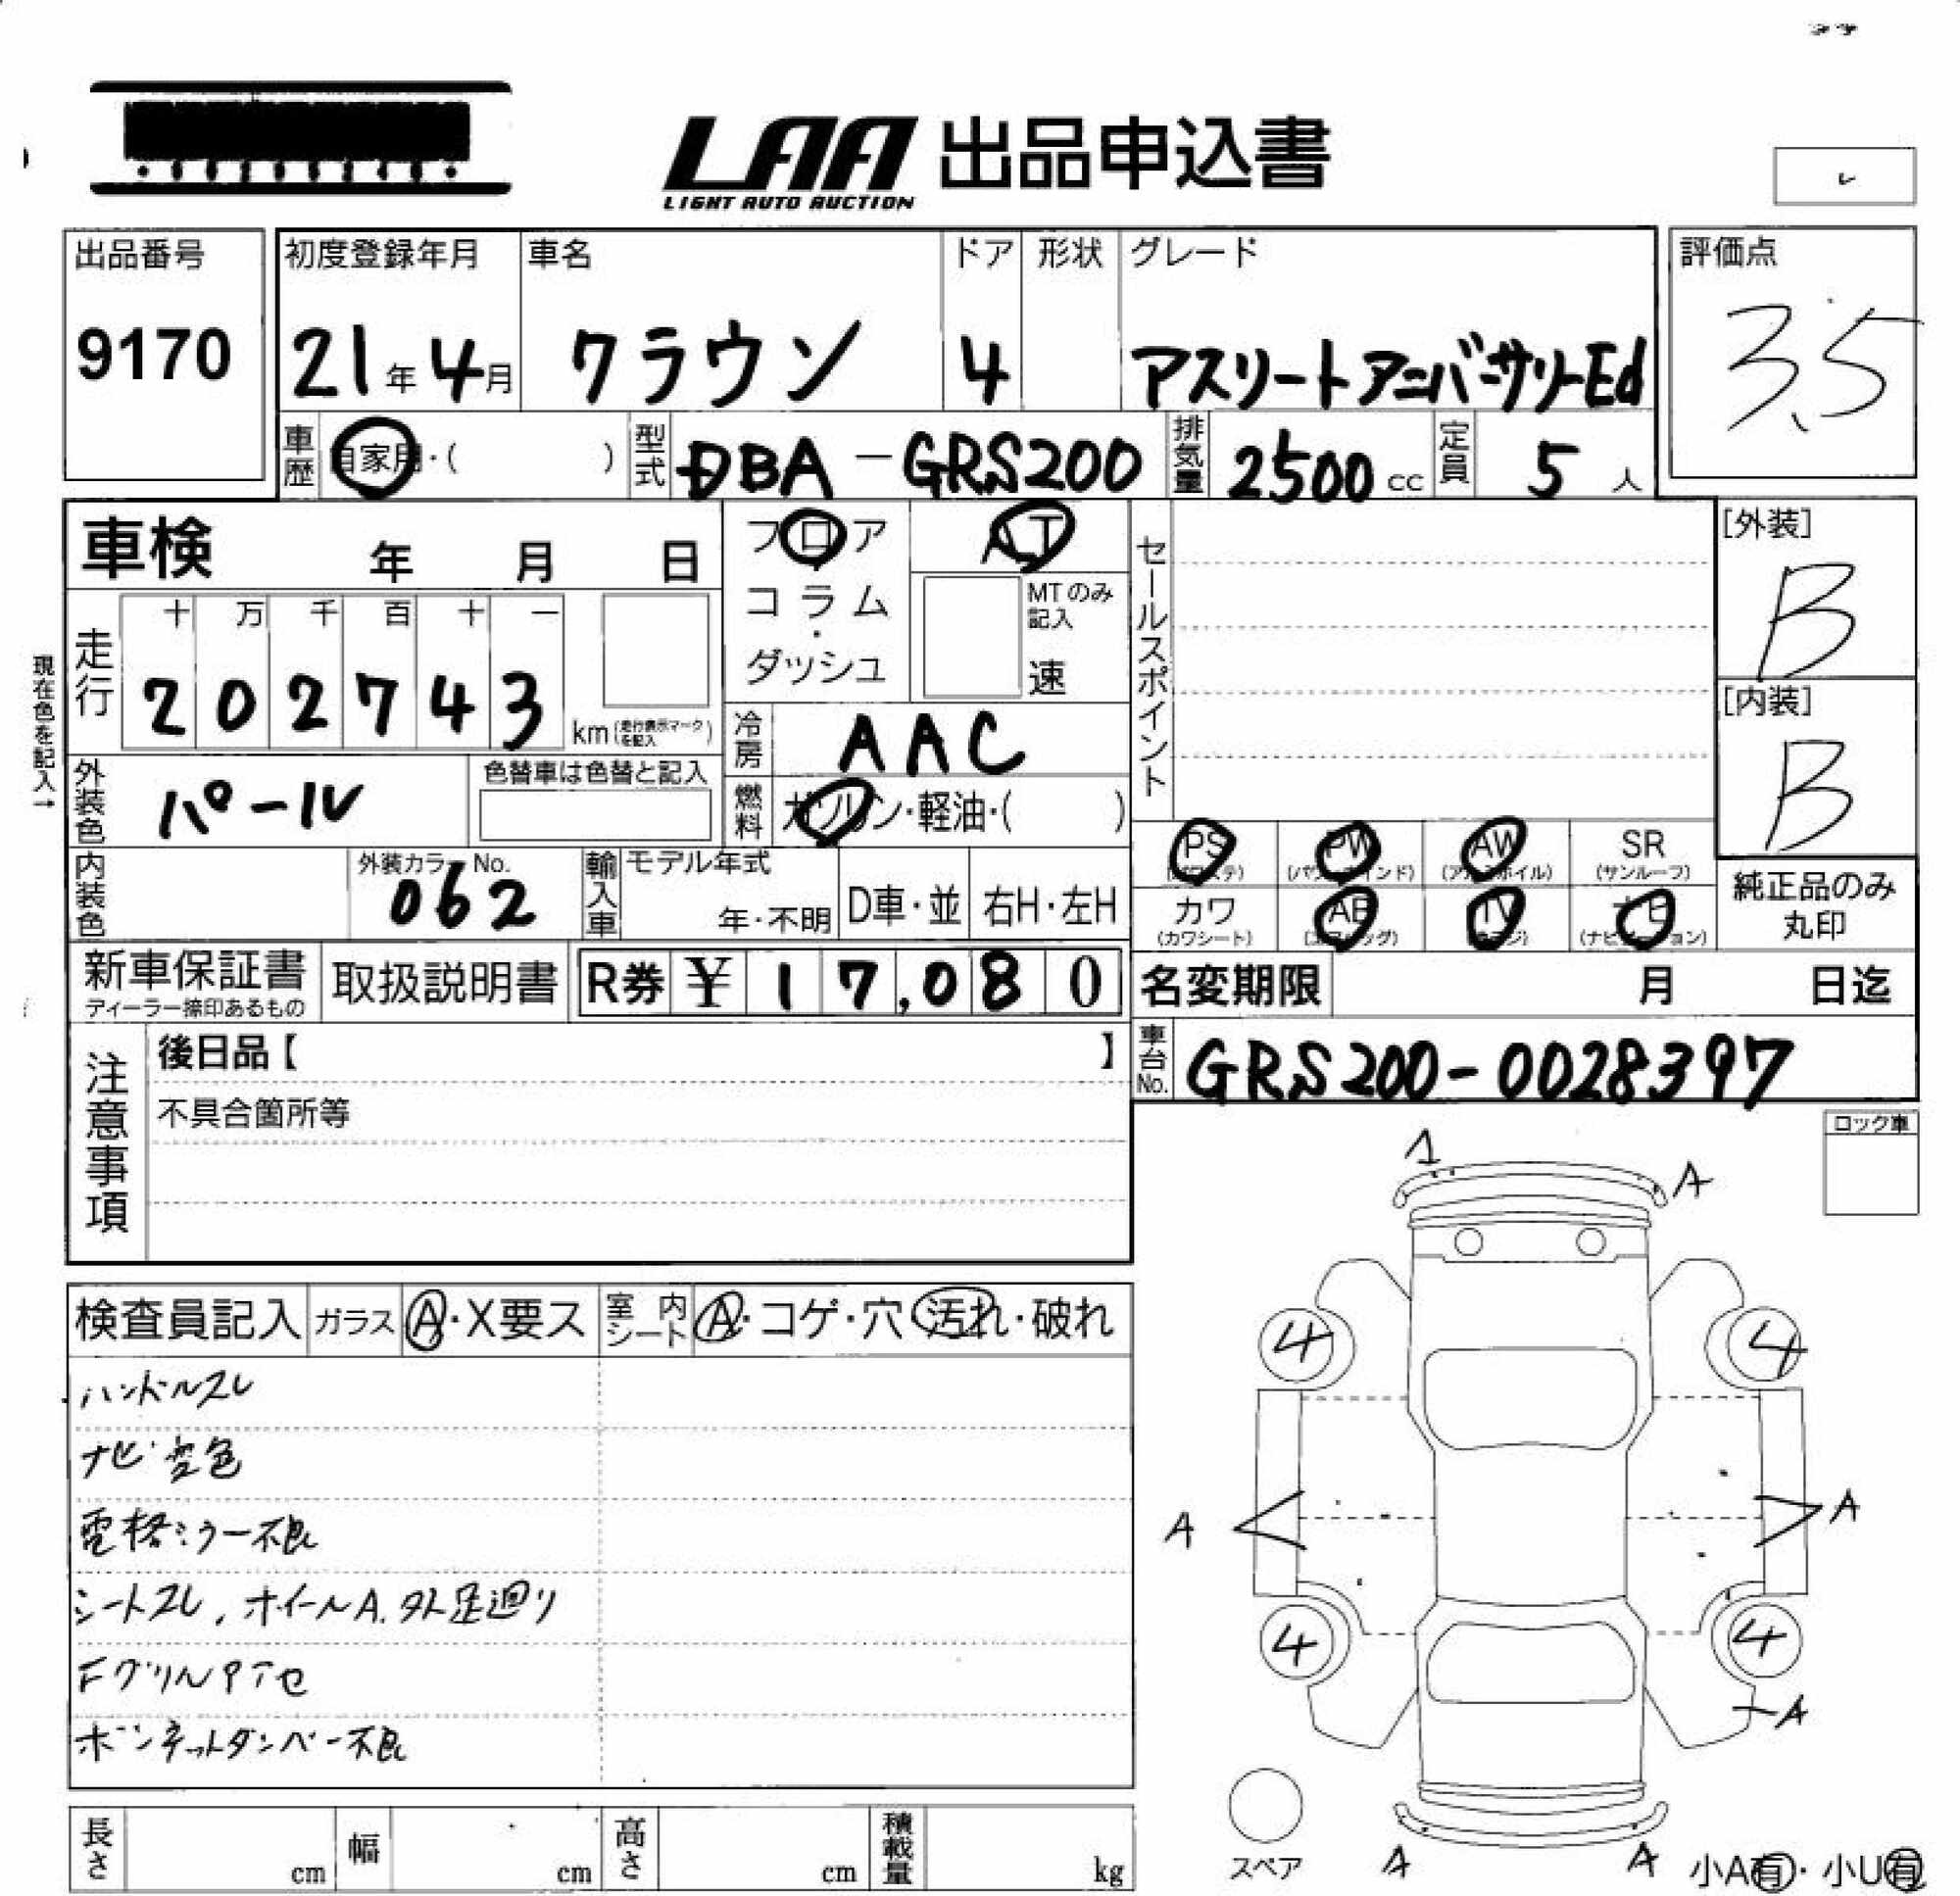 LAA 出品申込書
LIGHT AUTO AUCTION
出品番号
9170
初度登録年月
21年4月
車名
クラウン
ドア
4
形状
グレード
アスリートアニバーサリーEd
評価点
3.5
車歴 自家用・( )
型式 DBA-GRS200
排気量 2500cc
定員 5人
車検 年 月 日
フロア
コラム
・
ダッシュ
AT
MTのみ記入
速
セールスポイント
[外装]
B
[内装]
B
現在色を記入→
走行
十 万 千 百 十 一
2 0 2 7 4 3
km(走行表示マークを記入)
冷房 AAC
外装色 パール
色替車は色替と記入
燃料 ガソリン・軽油・( )
内装色
外装カラーNo.
062
輸入車
モデル年式
年・不明
D車・並
右H・左H
PS
(パワステ)
PW
(パワーウインド)
AW
(アルミホイル)
SR
(サンルーフ)
カワ
(カワシート)
AB
(エアバッグ)
TV
(テレビ)
ナビ
(ナビゲーション)
純正品のみ
丸印
新車保証書
ディーラー捺印あるもの
取扱説明書
R券 ¥ 17,080
名変期限 月 日迄
車台No. GRS200-0028397
注意事項
後日品【 】
不具合箇所等
ロック車
1
A
検査員記入
ガラス A・X要ス
室内シート A・コゲ・穴・汚れ・破れ
ハンドルスレ
ナビ変色
電格ミラー不良
シートスレ、ホイールA.タト足廻り
FグリルPアセ
ボンネットダンパー不良
4
4
A
A
4
4
A
スペア
A
A
小A有・小U有
長さ cm
幅 cm
高さ cm
積載量 kg